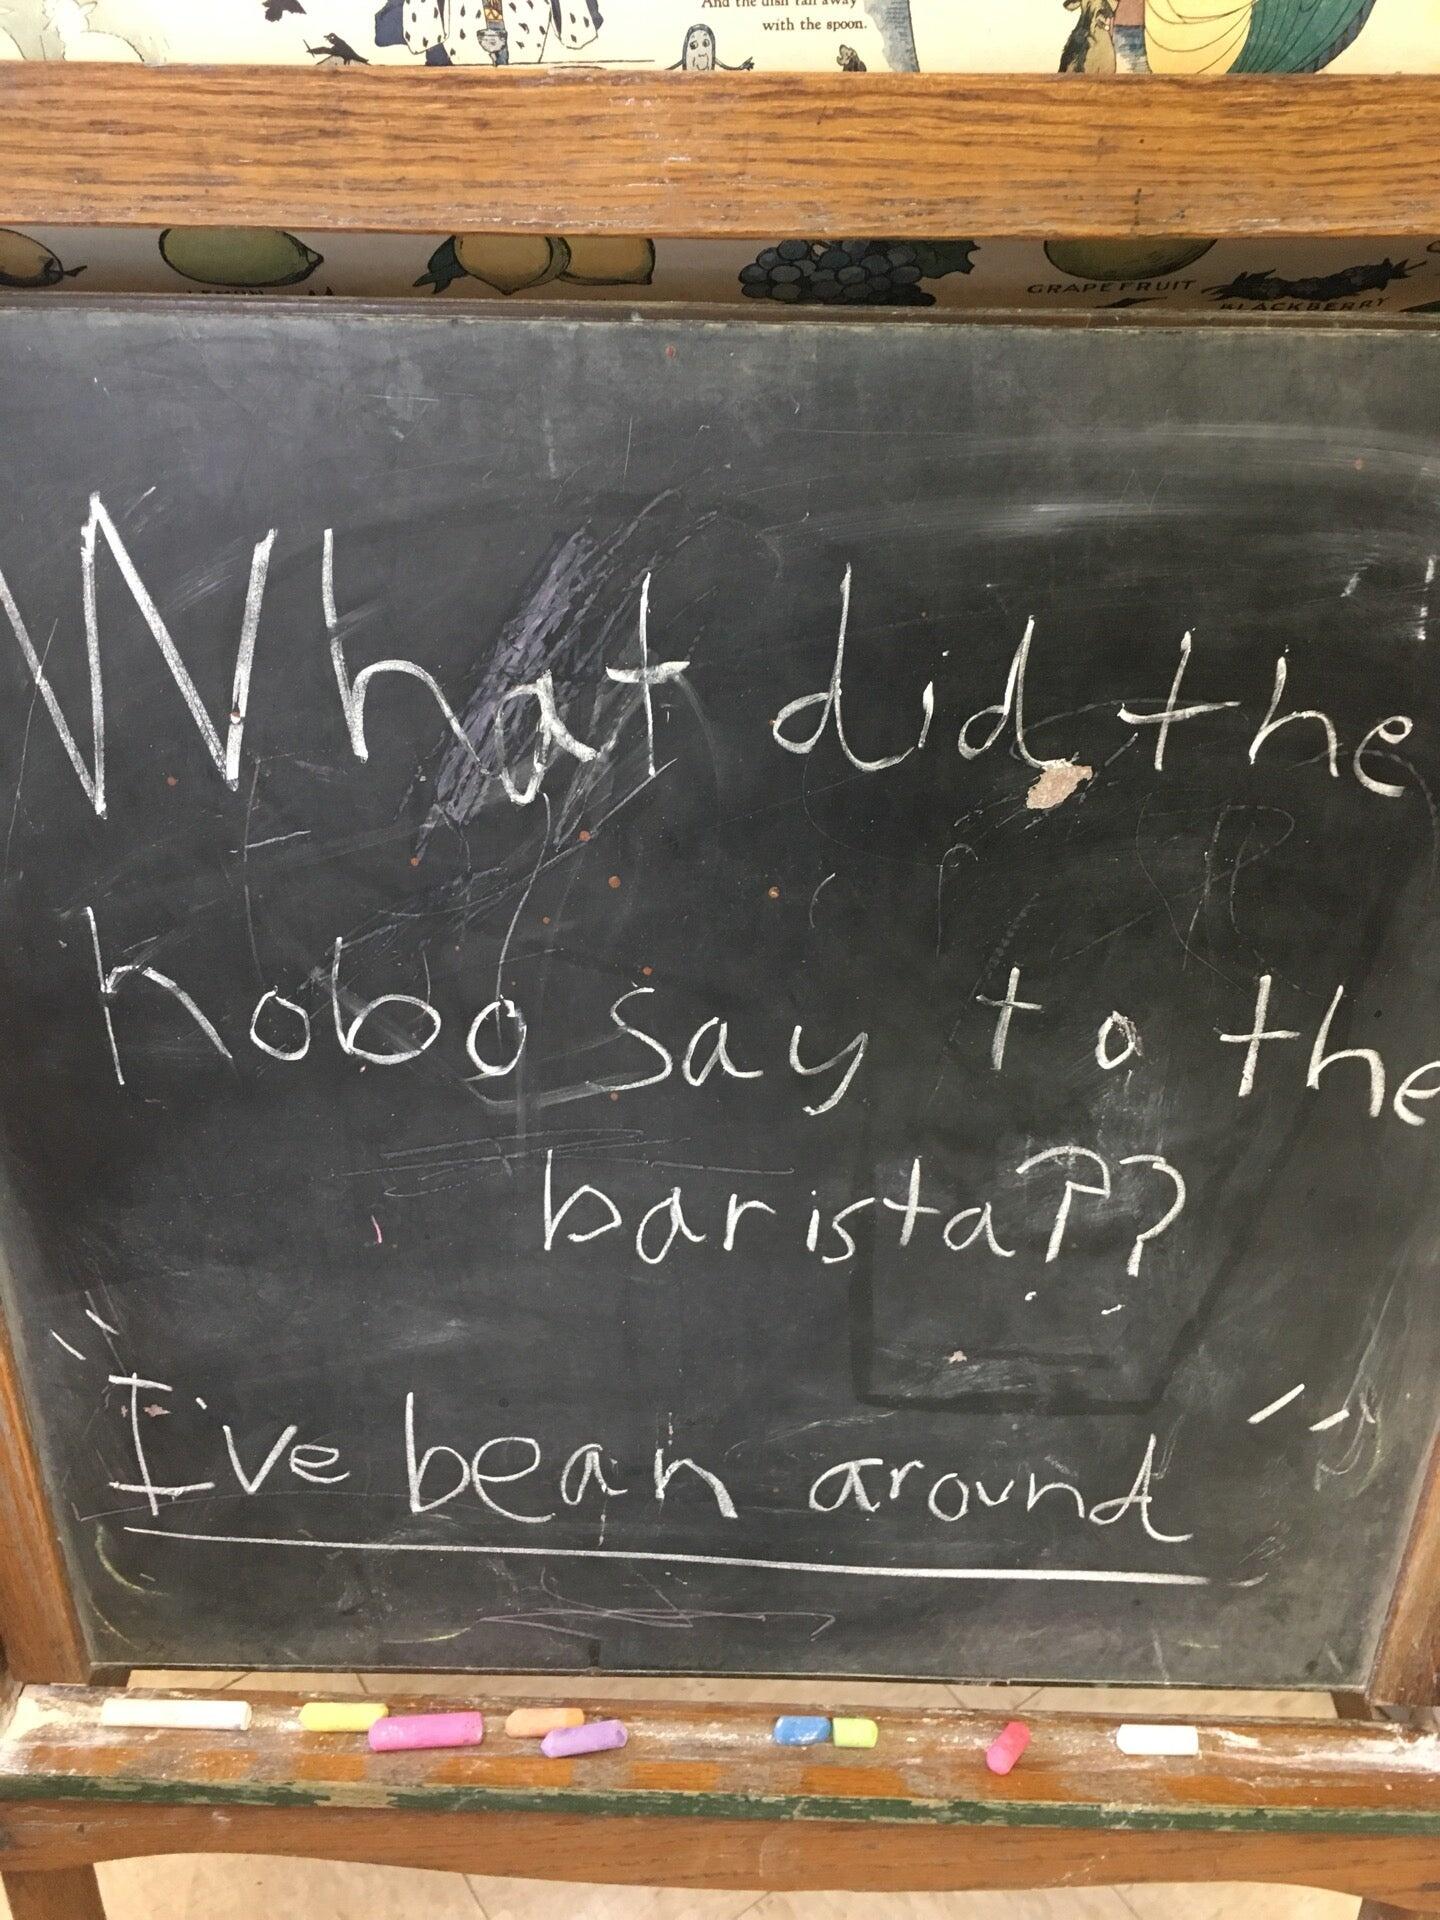 And the dish ran away
with the spoon.
LEMON
GRAPEFRUIT
BLACKBERRY
What did the
hobo say to the
barista??
"I've bean around"